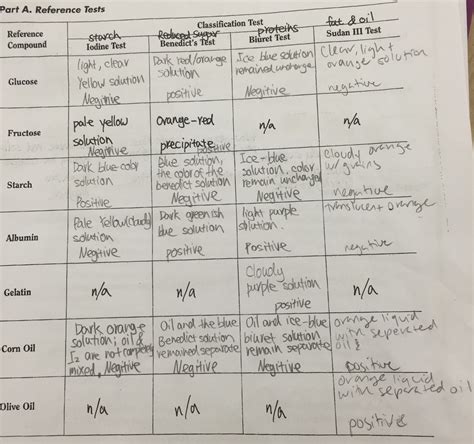 Part A. Reference Tests
Classification Test
Reference
Compound
starch
Iodine Test
Reduced sugar
Benedict's Test
proteins
Biuret Test
fat & oil
Sudan III Test
Glucose
light, clear
Yellow solution
Negitive
Dark red/orange
solution
positive
Ice blue solution
remained unchange
Negitive
Clear, light
orange solution
negative
Fructose
pale yellow
solution
Negitive
Orange-red
precipitate
Positive
n/a
n/a
Starch
Dark blue color
solution
Positive
Blue solution,
the color of the
benedict solution
Negitive
Ice-blue
solution, color
remain unchanged
Negitive
Cloudy orange
w/ grains
negitive
Albumin
Pale Yellow (cloudy)
solution
Negitive
Dark greenish
blue solution
positive
light purple
solution.
Positive
translucent orange
negative
Gelatin
n/a
n/a
Cloudy
purple solution
positive
n/a
Corn Oil
Dark orange
solution; oil &
I₂ are not
mixed, Negitive
Oil and the blue
Benedict solution
remained separate
Negitive
Oil and ice-blue
biuret solution
remain separate
Negitive
orange liquid
with seperated
oil
positive
Olive Oil
n/a
n/a
n/a
orange liquid
with separated oil
positive